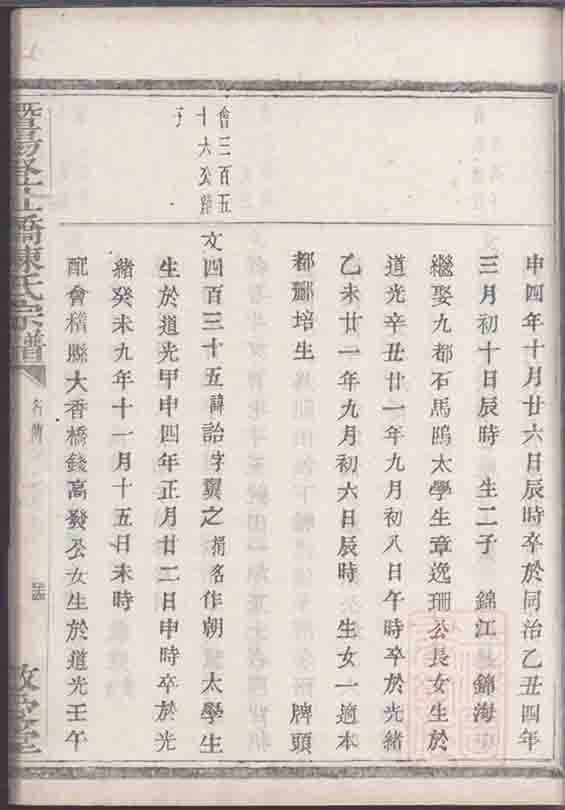 申四年十月廿六日辰時卒於同治乙丑四年
三月初十日辰時 生二子 錦江 錦海
繼娶九都石馬隝太學生章逸珊公長女生於
道光辛丑廿一年九月初八日午時卒於光緒
乙未廿一年九月初六日辰時 生女一適本
都酈培生 牌頭
會三百五
十六公諱
子
文四百三十五諱詒字翼之捐名作朝 太學生
生於道光甲申四年正月廿二日申時卒於光
緒癸未九年十一月十五日未時
配會稽縣大香橋錢高發公女生於道光壬午
暨陽 橋陳氏宗譜
行傳